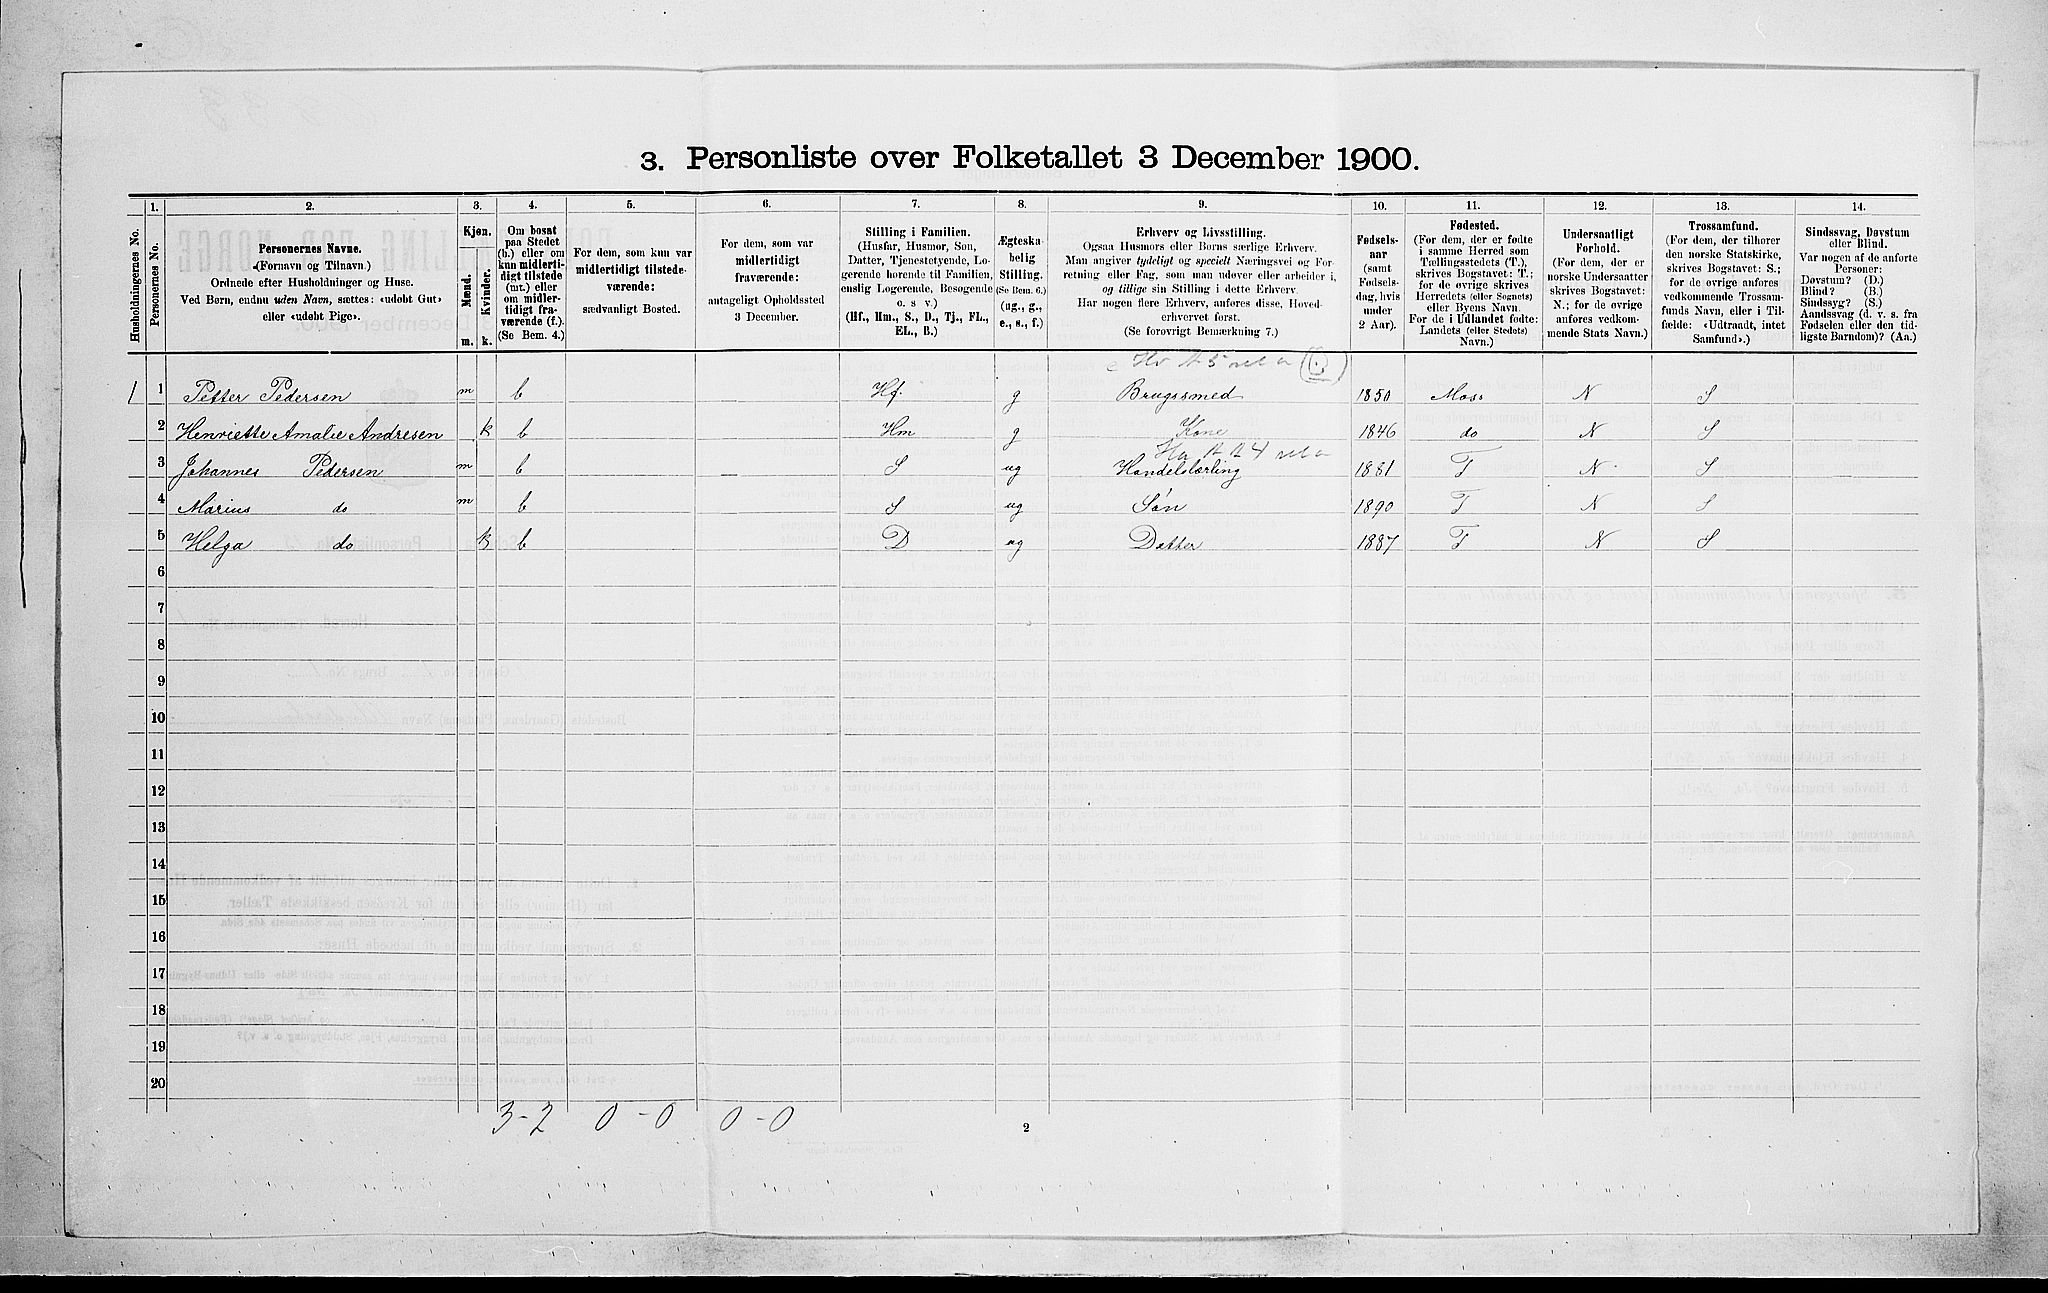 3. Personliste over Folketallet 3 December 1900.
1. 2. 3. 4. 5. 6. 7. 8. 9. 10. 11. 12. 13. 14.
Husholdningernes No.
Personernes No.
Personernes Navne.
(Fornavn og Tilnavn.)
Ordnede efter Husholdninger og Huse.
Ved Børn, endnu uden Navn, sættes: «udøbt Gut»
eller «udøbt Pige».
Kjøn.
Mænd.
Kvinder.
m. k.
Om bosat
paa Stedet
(b.) eller om
kun midlerti-
digt tilstede
(mt.) eller
om midler-
tidigt fra-
værende (f.).
(Se Bem. 4.)
For dem, som kun var
midlertidigt tilstede-
værende:
sædvanligt Bosted.
For dem, som var
midlertidigt
fraværende:
antageligt Opholdssted
3 December.
Stilling i Familien.
(Husfar, Husmor, Søn,
Datter, Tjenestetyende, Lo-
gerende hørende til Familien,
enslig Logerende, Besøgende
o. s v.)
(Hf., Hm., S., D., Tj., FL.,
EL., B.)
Ægteska-
belig
Stilling.
(Se Bem. 6.)
(ug., g.,
e., s., f.)
Erhverv og Livsstilling.
Ogsaa Husmors eller Børns særlige Erhverv.
Man angiver tydeligt og specielt Næringsvei og For-
retning eller Fag, som man udøver eller arbeider i,
og tillige sin Stilling i dette Erhverv.
Har nogen flere Erhverv, anføres disse, Hoved-
erhvervet først.
(Se forøvrigt Bemærkning 7.)
Fødsels-
aar
(samt
Fødsels-
dag, hvis
under
2 Aar).
Fødested.
(For dem, der er fødte
i samme Herred som
Tællingsstedets (T.),
skrives Bogstavet: T.;
for de øvrige skrives
Herredets (eller Sognets)
eller Byens Navn.
For de i Udlandet fødte:
Landets (eller Stedets)
Navn.)
Undersaatligt
Forhold.
(For dem, der er
norske Undersaatter
skrives Bogstavet:
N.; for de øvrige
anføres vedkom-
mende Stats Navn.)
Trossamfund.
(For dem, der tilhører
den norske Statskirke,
skrives Bogstavet: S.;
for de øvrige anføres
vedkommende Trossam-
funds Navn, eller i Til-
fælde: «Udtraadt, intet
Samfund».)
Sindssvag, Døvstum
eller Blind.
Var nogen af de anførte
Personer:
Døvstum? (D.)
Blind? (B.)
Sindssyg? (S.)
Aandssvag (d. v. s. fra
Fødselen eller den tid-
ligste Barndom)? (Aa.)
1 1 Petter Pedersen m b Hf. g Brugssmed 1850 Moss N S
2 Henriette Amalie Andresen k b Hm g Kone 1846 do N S
3 Johannes Pedersen m b — S ug Handelslærling 1881 T N S
4 Marius do m b S ug Søn 1890 T N S
5 Helga do k b D ug Datter 1887 T N S
6
7
8
9
10
11
12
13
14
15
16
17
18
19
20
3-2 0-0 0-0
2